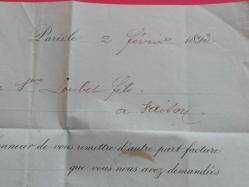 Paris le 2 février 189
Loubet fils
a Vaison
nneur de vous remettre d'autre part facture
que vous nous avez demandées